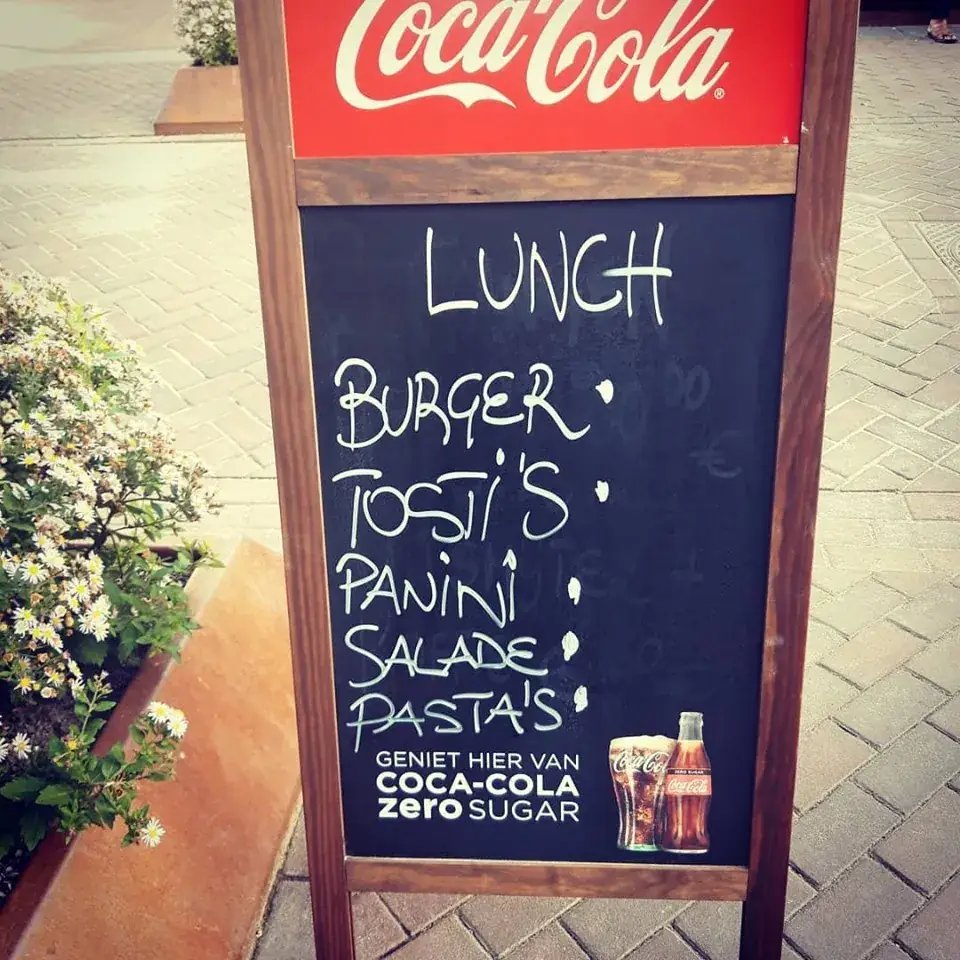 Coca-Cola®
LUNCH
BURGER
TOSTI'S
PANINI
SALADE
PASTA'S
GENIET HIER VAN
COCA-COLA
zero SUGAR
Coca-Cola
ZERO SUGAR
Coca-Cola